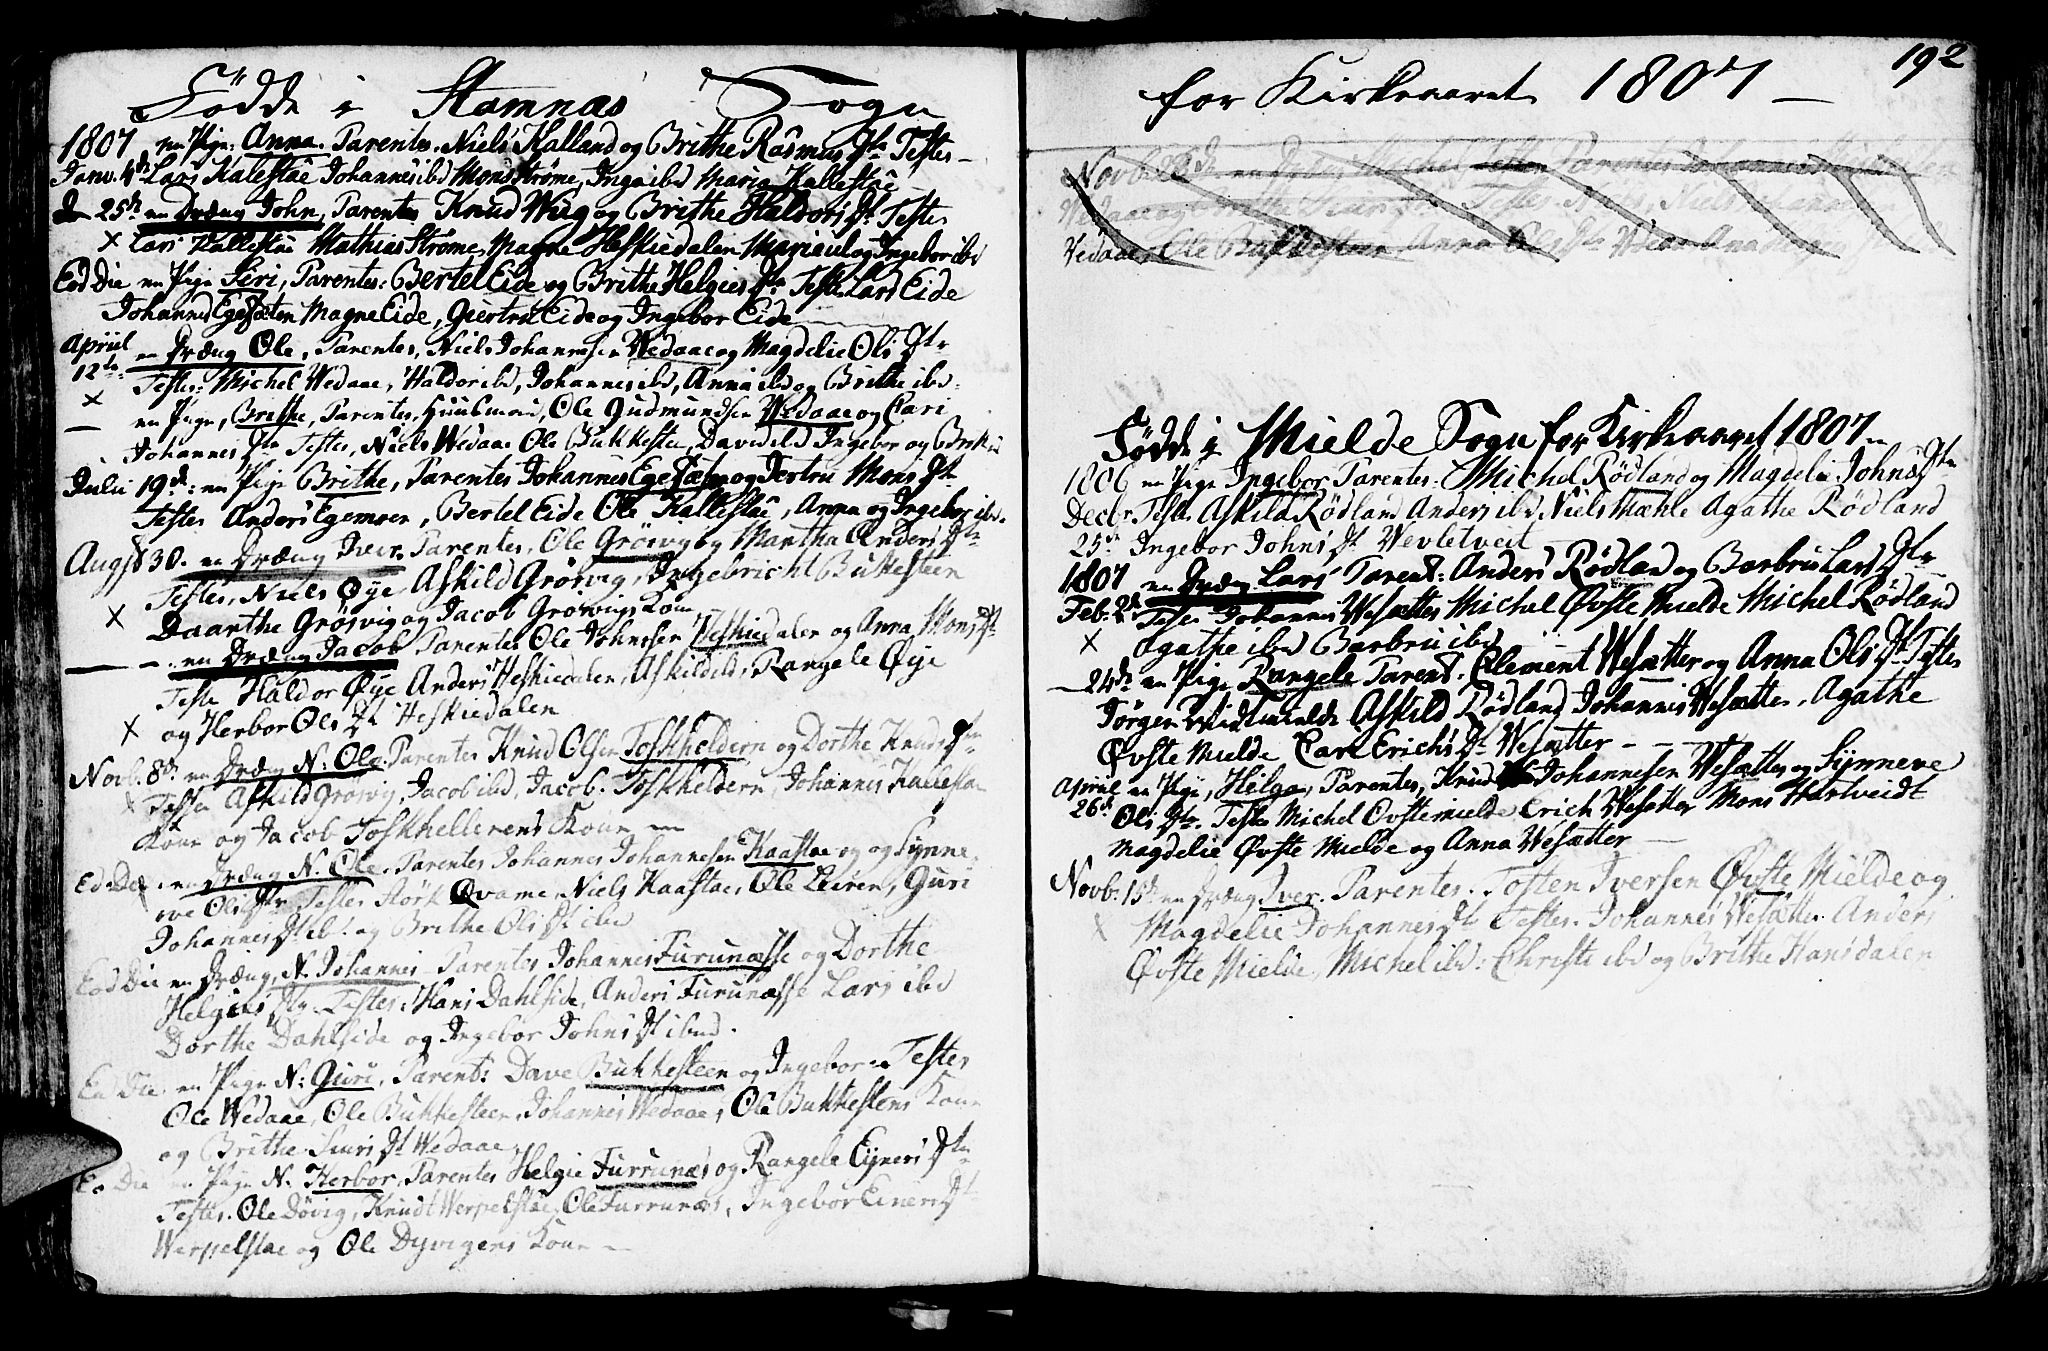 Födde i Stamnes Sogn
1807 en Pige: Anna. Parentes. Niels Kalland og Brithe Rasmus Dtr Testes
Janv. 4de Lars Kalestae Johannes ibd Mons Strøme, Inga ibd Maria Kallestae
d 25de en Dræng John, Parentes Knud Wiig og Brithe Haldors Dt. Testes
× Lars Kallestae Mathias Strøme, Magne Heskiedalen Mari aul og Ingebor ibd
Eod Die en Pige Seri, Parentes: Bertel Eide og Brithe Helgies Dtr Teste Lars Eide
Johannes Egesæten Magne Eide, Giertru Eide og Ingebor Eide
Apriil en Dræng Ole, Parentes, Niels Johannesen Wedaae og Magdelie Ols Dtr
12te Testes: Michel Wedaae, Haldor ibd, Johannes ibd, Anna ibd og Brithe ibd.
× en Pige, Brithe, Parentes, Huusmand, Ole Gudmundsen Wedaae og Cari
Johannes Dtr Testes, Niels Wedaae Ole Bukkesten, David ibd Ingebor og Brithe
Julii 19de: en Pige Brithe, Parentes Johannes Egesæten og Jertru Mons Dtr
Testes Anders Egemoen, Bertel Eide Ole Kallestae, Anna og Ingebor ibd.
Augst 30. en Dræng Iver. Parentes, Ole Grøsvig og Martha Anders Dtr
Testes, Niels Øye, Askild Grøsvig, Ingebricht Bukkesteen
× Daarthe Grøsvig og Jacob Grøsvigs Kone
— en Dræng Jacob Parentes Ole Johnesen Heskiedalen og Anna Mons Dtr
Teste Haldor Øye Anders Heskiedalen, Askild ibd, Rangele Øye
× og Herbor Ols Dtr Heskiedalen
Novb. 8de en Dræng N: Ole. Parentes Knud Olsen Toskheldern og Dorthe Knuds Dtr
× Testes Askild Grøsvig, Jacob ibd, Jacob. Toskheldern, Johannes Kallestae
Kone og Jacob Toskhellerens Kone
Eod Die en Dræng N. Ole. Parentes Johannes Johannesen Kaastae og og Synne
ve Ols Dtr Testes Størk Qvame Niels Kaastae, Ole Leiren, Guri
Johannes Dt ibd og Brithe Ols Dt ibd
Eod Die en Dræng, N. Johannes Parentes Johannes Furunesse og Dorthe
Helgies Dtr Testes: Hans Dahlside, Anders Furunesse Lars ibd
Dorthe Dahlside og Ingebor Johns Dt ibud.
Eod Die en Pige N: Guri, Parent: Dave Bukkesteen og Ingebor Testes
Ole Wedaae, Ole Bukkesteen, Johannes Wedaae, Ole Bukkestens Kone
og Brithe Siurs Dt Wedaae.
Eo Die en Pige N. Herbor, Parentes Helgie Furrunæs og Rangele Eyners Dtr
Testes. Ole Døvig, Knudt Werpelstae, Ole Furrunæs, Ingebor Einers Dt
Werpelstae og Ole Dyvigens Kone
192
for Kirkeaaret 1807
Novb. en Pige
Wedaae og Brithe Testes Niels
Wedaae, Ole Bukkesteen Anna Ols Dtr
Födde i Mielde Sogn for Kirkeaaret 1807
1806 en Pige Ingebor Parentes: Michel Rödland og Magdeli Johns Dtr
Decbr Test Askild Rödland Anders ibd Niels Mæhle Agathe Rödland
25de Ingebor Johns Dt Wevletveit
1807 en Dræng Lars Parent: Anders Rødland og Barbru Lars Dtr
Feb. 2de Teste Johannes Wesætter Michel Øvste Mielde Michel Rødland
× Agathe ibd Barbru ibd
24de en Pige Rangele Parent. Clement Wesætter og Anna Ols Dt Testes
Jørgen Midtmielde Askild Rødland Johannes Wesætter, Agathe
Øvste Mielde Cari Erichs Dt Wesætter
Apriil en Pige, Helga, Parentes, Knud Johannesen Wesætter og Synneve
26de Ols Dtr. Testes Michel Øvstemielde Erich Wesætter Mons Hartveidt
Magdelie Øvste Mielde og Anna Wesætter
Novb. 15de en Dræng Iver. Parentes. Tosten Iversen Øvste Mielde og
× Magdelie Johannes Dt Testes. Johannes Wesætter. Anders
Øvste Mielde, Michel ibd: Christi ibd og Brithe Hansdalen